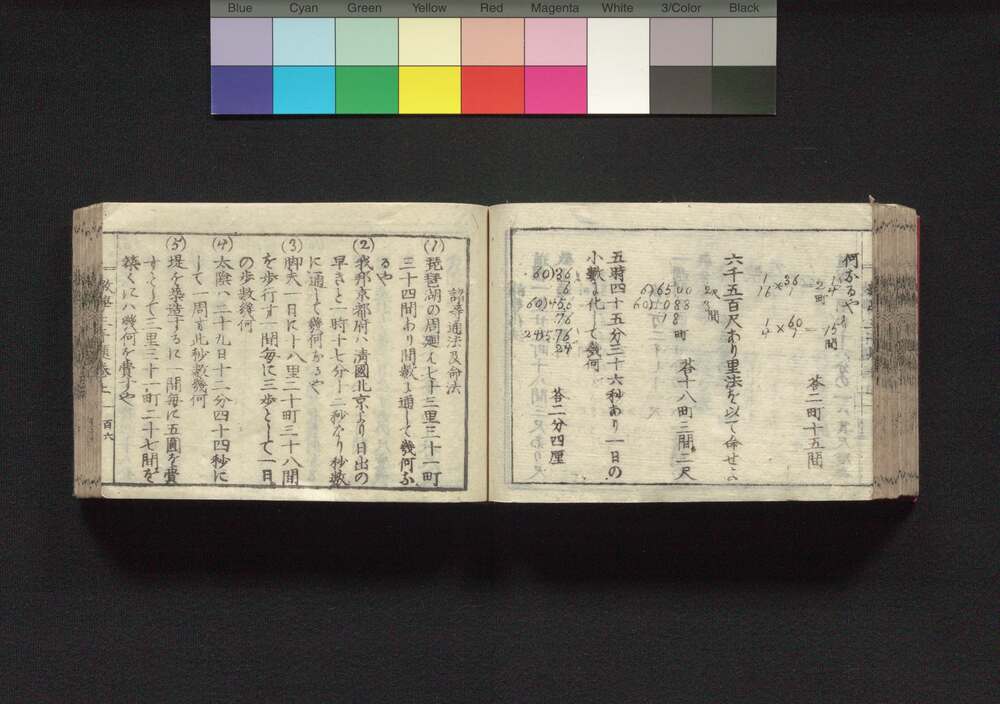 Blue Cyan Green Yellow Red Magenta White 3/Color Black
何なるや
答二町十五間
六千五百尺あり里法を以て命せよ
答十八町三間二尺
五時四十五分三十六秒あり一日の
小数に化して幾何
答二分四厘
諸等通法及命法
(1)琵琶湖の周廻八七十三里三十一町
三十四間あり間数に通して幾何な
るや
(2)我邦京都府ハ清國北京より日出の
早きと一時十七分十二秒なり秒数
に通して幾何なるや
(3)脚夫一日に十八里二十町三十八間
を歩行す一間毎に三歩として一日
の歩数幾何
(4)太陰ハ二十九日十二分四十四秒に
して一周す此秒数幾何
(5)堤を築造するに一間毎に五圓を費
すとして三里三十一町二十七間を
築くにハ幾何を費すや
百六